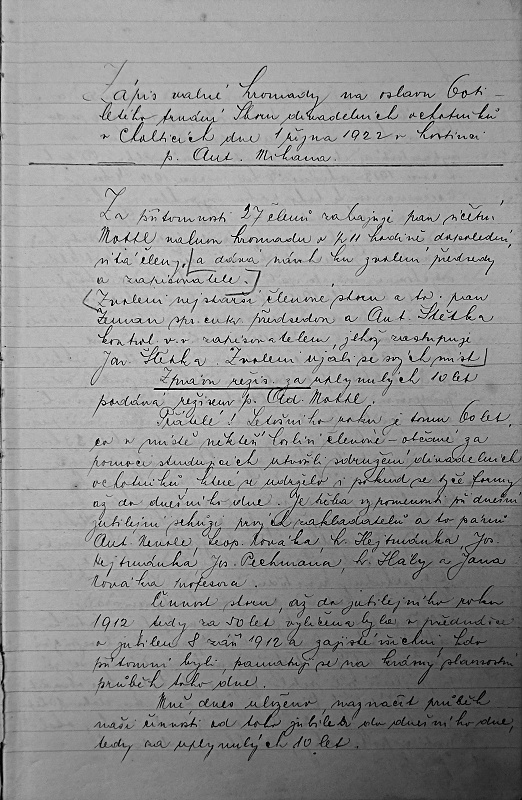 Zápis valné hromady na oslavu 60ti-
letého trvání Sboru divadelních ochotníků
v Cholticích dne 1 října 1922 v hostinci
p. Ant. Míhana.
Za přítomnosti 27 členů zahajuje pan účetní
Mottl valnou hromadu v ½ 11 hodině dopolední,
vítá členy, a dává návrh ku zvolení předsedy
a zapisovatele.
Zvoleni nejstarší členové sboru a to: pan
Zeman spr. cukr. předsedou a Ant. Štětka
kontrol. v.v. zapisovatelem, jehož zastupuje
Jar. Štětka. Zvolení ujali se svých míst
Zpráva režis. za uplynulých 10 let
podává režiseur p. Old. Mottl.
Přátelé! Letošního roku je tomu 60 let,
co v místě někteří horliví členové - občané za
pomoci studujících utvořili sdružení divadelních
ochotníků, které se udrželo i pokud se týče formy
až do dnešního dne. Je třeba vzpomenouti při dnešní
jubilejní schůzi prvých zakladatelů a to pánů
Ant. Nevole, Leop. Nováka, Fr. Hejtmánka, Jos.
Hejtmánka, Jos. Pechmana, Fr. Háby a Jana
Nováka profesora.
Činnost sboru, až do jubilejního roku
1912 tedy za 50 let vylíčena byla v přednášce
o jubileu 8 září 1912 a zajisté všichni, kdo
přítomni byli pamatují se na krásný slavnostní
průběh toho dne.
Mně, dnes uloženo, naznačit průběh
naší činnosti od toho jubilea do dnešního dne,
tedy za uplynulých 10 let.